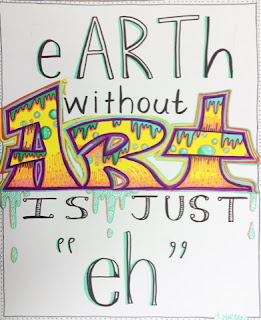 eARTh
without
ART
IS JUST
"eh"